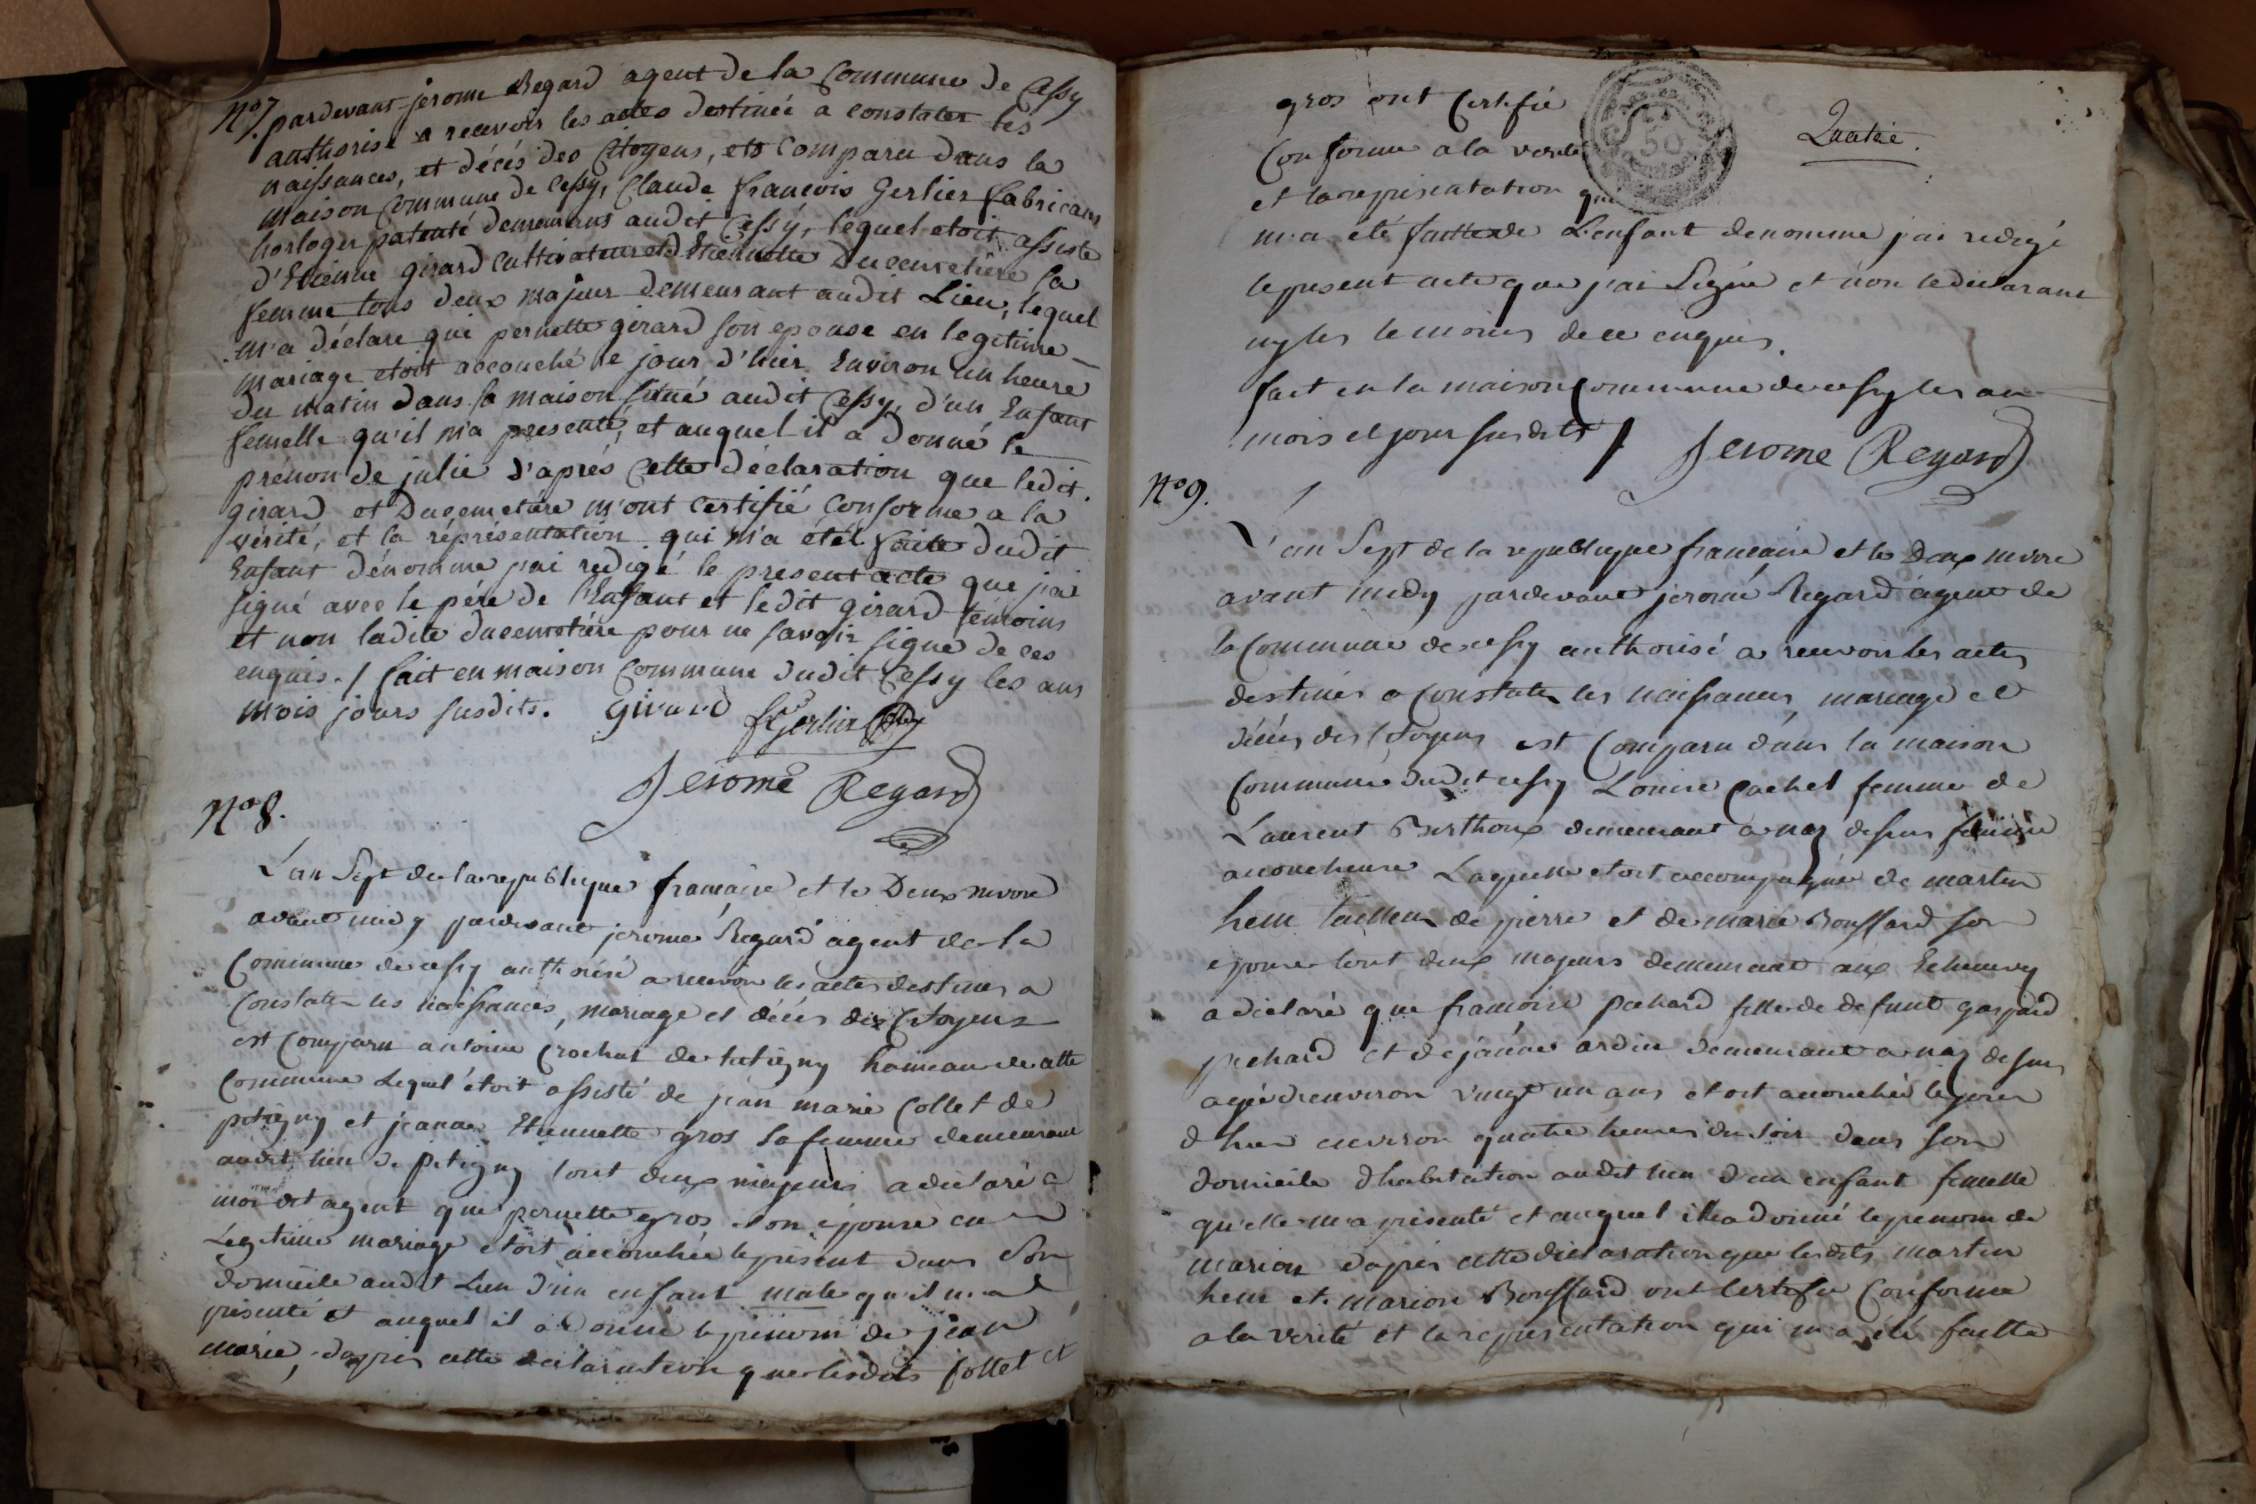 N°7. pardevant jerome Regard agent de la Commune de Cessy
authorisé a recevoir les actes destinée a constater les
naissances, et décés des Citoyens, est comparu dans la
maison Commune de Cessy, Claude françois Gerlier fabricant
horloger patenté demeurant audit Cessy, lequel etoit assisté
d'Etienne girard cultivateur et d'Etiennette Ducemetiére sa
femme tous deux majeur demeurant audit Lieu, lequel
m'a déclare que pernette girard son epouse en legitime
mariage etoit accouché le jour d'hier Environ un heure
du matin dans sa maison situé audit Cessy, d'un Enfant
femelle qu'il m'a presenté, et auquel il a donné le
prénon de julie d'aprés Cette déclaration que ledit.
girard et Ducemetiére m'ont certifié conforme a la
vérité, et la réprésentation qui m'a été faite dudit
Enfant dénommé j'ai redigé le present acte que j'ai
signé avec le pére de l'Enfant et ledit girard temoins
et non ladite ducemetiére pour ne savoir signe de ces
enquis. / fait en maison Commune dudit Cessy les ans
mois jours susdits. Girard Gerlier
Jerome Regard
N° 8.
L'an Sept de la republique française et le Deux nivose
avant midy pardevant jerome Regard agent de la
Commune de cessy authorisé a recevoir les actes destines a
Constater les naissances, mariage et décés des Citoyens
est Comparu antoine Crochat de hameau de cette
Commune Lequel étoit assisté de jean marie Collet de
pitigny et jeanne Etiennette gros sa femme demeurant
audit lieu de pitigny tout deux majeurs a déclaré a
moi dit agent que pernette gros son épouse en
Légitime mariage etoit accouchée le présent dans Son
domicile audit Lieu d'un enfant male qu'il m'a
présenté et auquel il a donné le prénom de jean
marie, d'apres cette declaration que lesdits Collet et
gros ont Certifié
Conforme a la verité
et la représentation qui
m'a été faitte de L'enfant denommé j'ai redigé
le present acte que j'ai Signé et non le déclarant
ny les temoins de ce enquis.
fait en la maison Commune de cessy les an
mois et jour susdits / Jerome Regard
Quatre.
50
N° 9.
L'an Sept de la republique française et le Deux nivose
avant midy pardevant jeromé Regard agent de
la Commune de cessy authorisé a recevoir les actes
destinés a Constater les naissances, mariage et
décés des Citoyens est Comparu dans la maison
Commune dudit cessy Louise pachet femme de
Laurent Berthoux demeurant a naz dessus femme
accoucheuse Laquelle etoit accompagné de martin
henr tailleur de pierre et de marie Bouffard son
epouse tout deux majeurs demeurant aux Echenevey
a déclaré que françoise pechard fille de defunt gaspard
pechard et de jeanne ardin demeurant a naz dessus
agée d'environ vingt un ans etoit accouchée le jour
d'hier environ quatre heures du soir dans son
domicile d'habitation audit lieu d'un enfant femelle
qu'elle m'a présenté et auquel elle a donné le prenom de
marion d'apres cette declaration que lesdits martin
henr et marion Bouffard ont Certifié Conforme
a la verité et la representation qui m'a été faitte